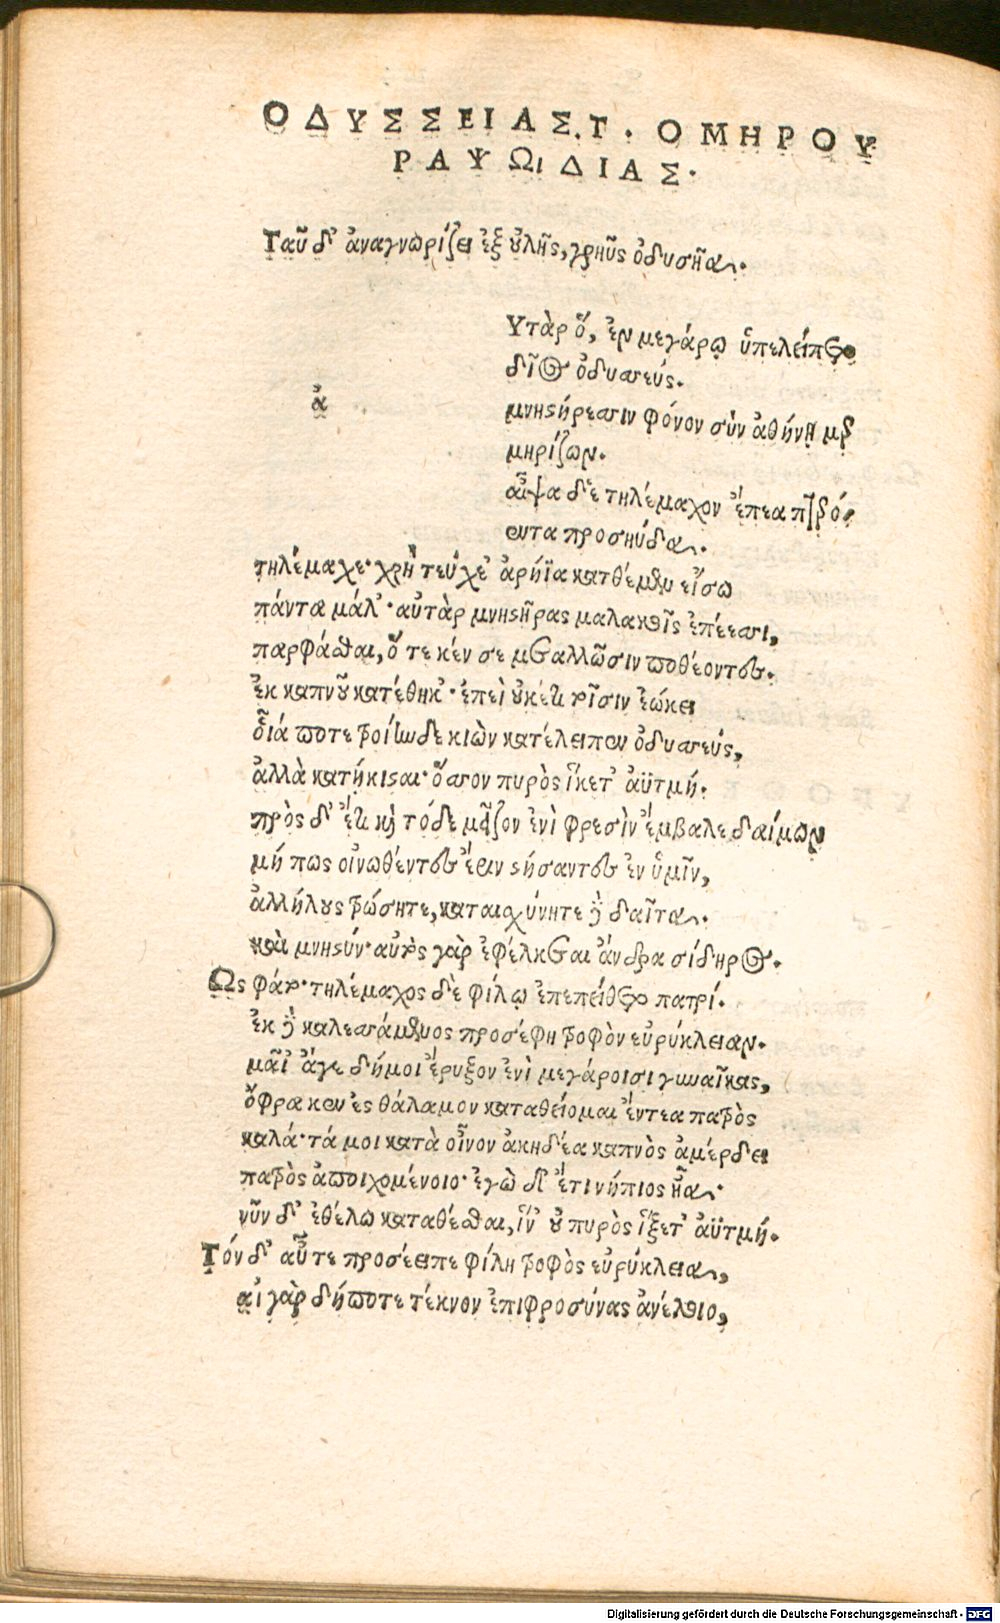 ΟΔΥΣΣΕΙΑΣ.Τ. ΟΜΗΡΟΥ
ΡΑΨΩΙΔΙΑΣ.
Ταῦ δ' ἀναγνωρίζει ἐξ οὐλῆς, γρηῦς ὀδυσῆα.
ἀ
Υτὰρ ὅ, ἐν μεγάρῳ ὑπελείπετο
δῖος ὀδυσσεύς.
μνηστήρεσσιν φόνον σὺν ἀθήνῃ μερ
μηρίζων.
αἶψα δὲ τηλέμαχον ἔπεα πτερό/
εντα προσηύδα.
τηλέμαχε· χρὴ τεύχε' ἀρήϊα κατθέμεν εἴσω
πάντα μάλ'· αὐτὰρ μνηστῆρας μαλακοῖς ἐπέεσσι,
παρφάσθαι, ὅτε κέν σε μεταλλῶσιν ποθέοντες.
ἐκ καπνοῦ κατέθηκ'· ἐπεὶ οὐκέτι τοῖσιν ἐῴκει
οἷά ποτε τροίηνδε κιὼν κατέλειπεν ὀδυσσεύς,
ἀλλὰ κατῄκισται· ὅσσον πυρὸς ἵκετ' ἀϋτμή.
πρὸς δ' ἔτι καὶ τόδε μεῖζον ἐνὶ φρεσὶν ἔμβαλε δαίμων
μή πως οἰνωθέντες ἔριν στήσαντες ἐν ὑμῖν,
ἀλλήλους τρώσητε, καταισχύνητέ τε δαῖτα.
καὶ μνηστύν· αὐτὸς γὰρ ἐφέλκεται ἄνδρα σίδηρος.
Ως φάτο· τηλέμαχος δὲ φίλῳ ἐπεπείθετο πατρί.
ἐκ δὲ καλεσσάμενος προσέφη τροφὸν εὐρύκλειαν.
μαῖ' ἄγε δή μοι ἔρυξον ἐνὶ μεγάροισι γυναῖκας,
ὄφρα κεν ἐς θάλαμον καταθείομαι ἔντεα πατρὸς
καλά· τά μοι κατὰ οἶκον ἀκηδέα καπνὸς ἀμέρδει
πατρὸς ἀποιχομένοιο· ἐγὼ δ' ἔτι νήπιος ἦα.
νῦν δ' ἐθέλω καταθέσθαι, ἵν' οὐ πυρὸς ἵξετ' ἀϋτμή.
Τόν δ' αὖτε προσέειπε φίλη τροφὸς εὐρύκλεια,
αἲ γὰρ δή ποτε τέκνον ἐπιφροσύνας ἀνέλοιο,
Digitalisierung gefördert durch die Deutsche Forschungsgemeinschaft - DFG